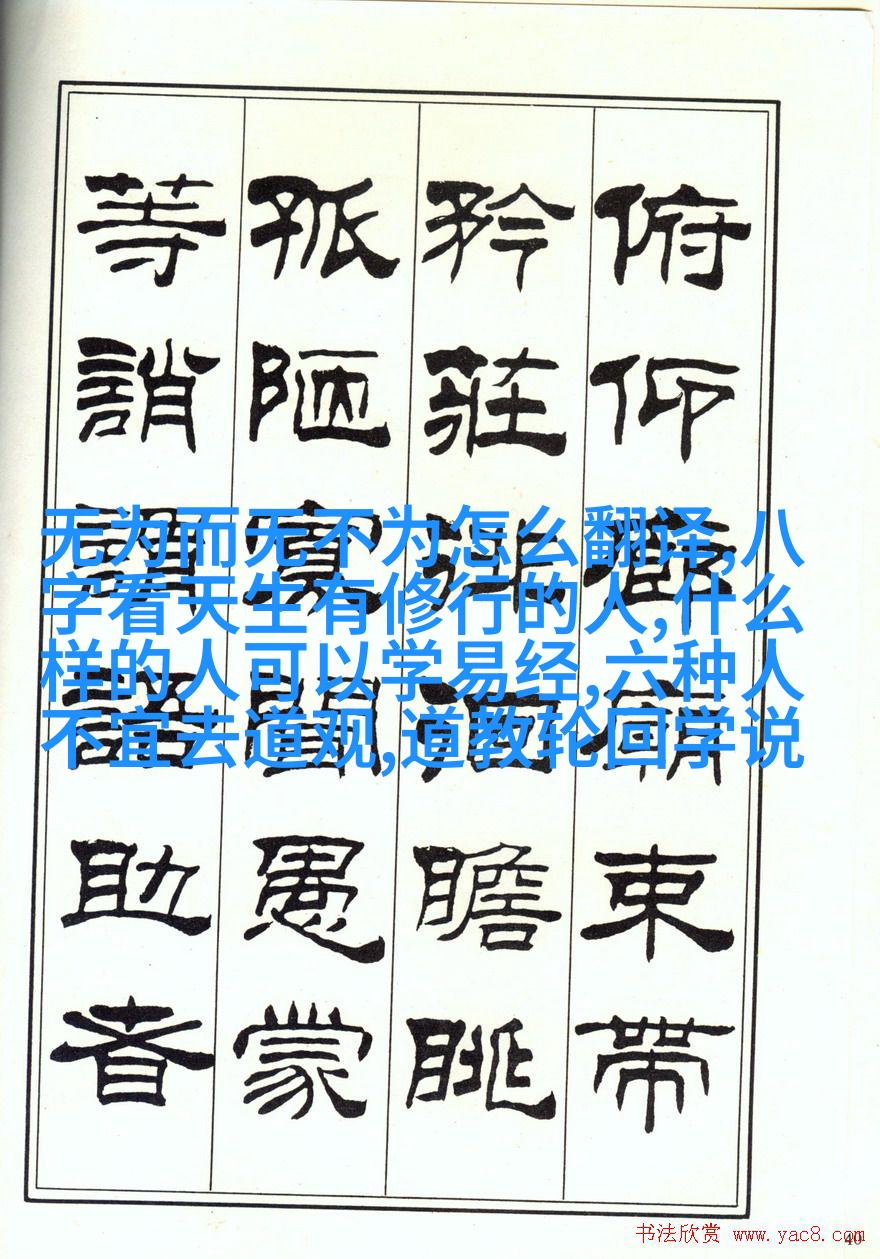 俯仰廊廟束帶
矜莊徘徊瞻眺
孤陋寡聞愚蒙
等誚謂語助者
无为而无不为怎么翻译,八
字看天生有修行的人,什么
样的人可以学易经,六种人
不宜去道观,道教轮回学说
书法欣赏 www.yac8.com
40